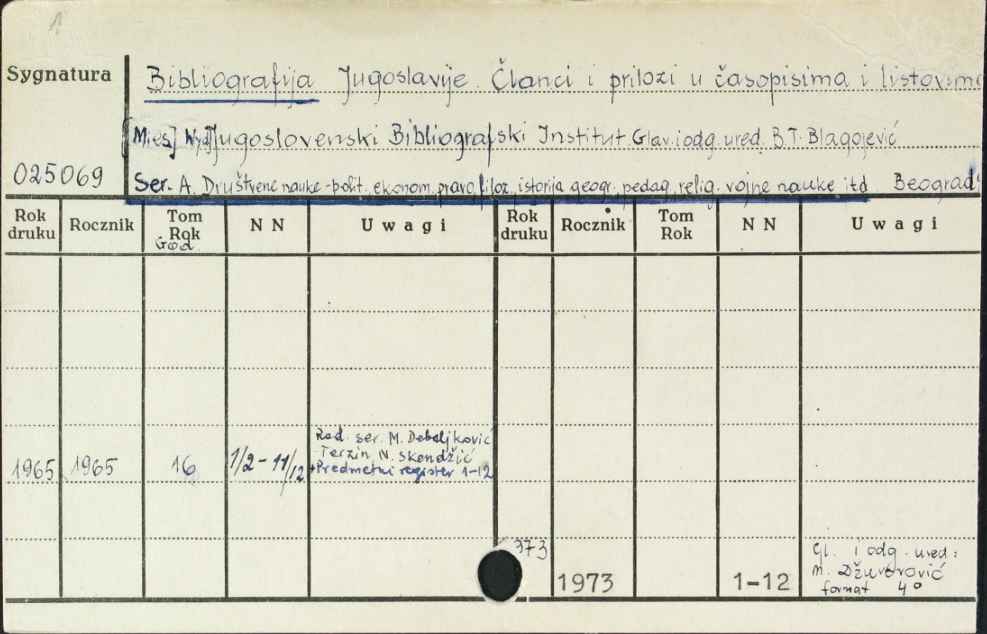 Sygnatura
Bibliografija Jugoslavije. Članci i prilozi u časopisima i listovima
[Mies] Wyd] Jugoslovenski Bibliografski Institut. Glav. i odg. ured. B.T. Blagojević
025069
Ser. A. Društvene nauke - polit. ekonom. pravo, filoz. istorija geogr. pedag. relig. vojne nauke itd Beograd
Rok druku Rocznik Tom Rok God. N N Uwagi Rok druku Rocznik Tom Rok N N Uwagi
Red. ser. M. Debeljković
Terzin, N. Skendžić
+ Predmetni register 1-12
1965 1965 16 1/2 - 11/12
973 Gl. i odg. ured:
1973 1-12 M.
format 4°